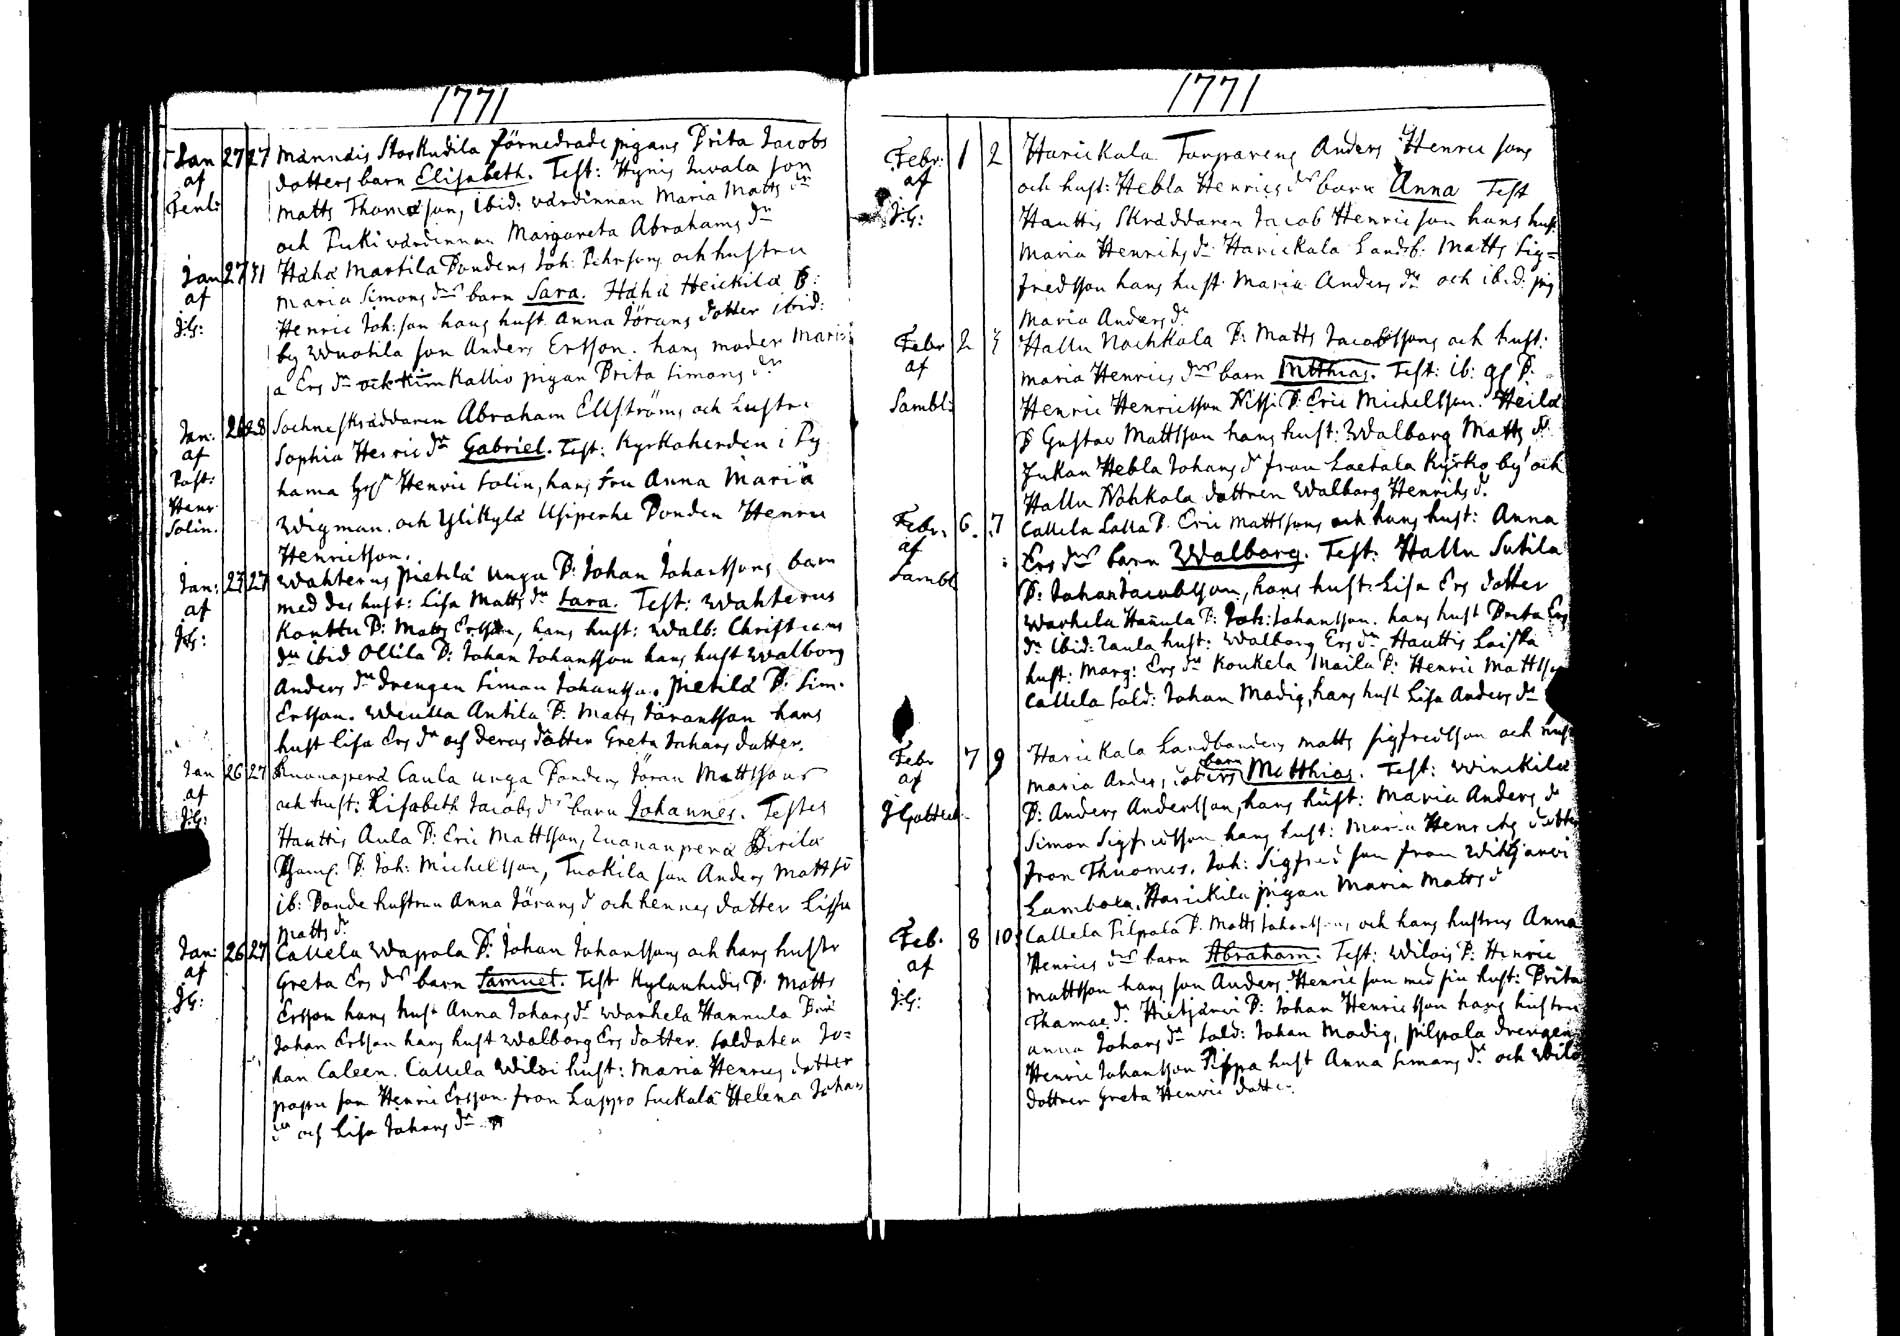 1771
Jan 27 27 Männäis Storkudila förnedrade pigans Brita Jacobs
af dotters barn Elisabeth. Test: Hynis Juvala son
Matts Thomasson, ibid: värdinnan Maria Matts dr
och Puki värdinnan Margareta Abrahams dr
Jan 27 31 Hähä Martila Bondens Joh: Pehrsons och hustru
af Maria Simons drs barn Sara. Hähä Heickilä B:
J:G: Henric Joh:son hans hust Anna Jörans dotter ibid:
by Wuotila son Anders Ersson. hans moder Mari-
a Ers dr Kallio pigan Brita Simons dr
Jan: 26 28 Sochneskräddaren Abraham Ellströms och hustru
af Sophia Henric dr Gabriel. Test: Kyrkoherden i Py
Past: hama Henric Solin, hans Fru Anna Maria
Henr Wigman. och Ylikylä Usiperhe Bonden Henric
Solin. Henricsson.
Jan: 23 27 Wahterus Pietilä unga B: Johan Johanssons barn
af med des hust: Lisa Matts dr Sara. Test: Wahterus
J:G: Konttu B: Matts Ersson, hans hust: Walb: Christians
dr ibid Ollila B: Johan Johansson hans hust Walborg
Anders dr drengen Simon Johansson. Pietilä B: Sim.
Ersson. Antila B: Matts Jöransson hans
hust Lisa Ers dr och deras dotter Greta Johans dotter.
Jan 26 27 Caula unga Bondens Jöran Mattssons
af och hust: Lisabeth Jacobs drs barn Johannes. Testes
J:G: Hauttis Aula B: Eric Mattsson,
B: Joh: Michelsson, Tuokila son Anders Matts
ib: Bonde hustrun Anna Jörans d och hennes dotter Lissu
Matts dr
Jan: 26 27 Callela Wapola B: Johan Johanssons och hans hustr
af Greta Ers drs barn Samuel. Test Kylänhedis B. Matts
J:G: Ersson hans hust Anna Johans dr Warhela Hannula
Johan Ersson hans hust Walborg Ers dotter. Soldaten Jo=
han Caleen. Callela Wiloi hust: Maria Henrics dotter
son Henric Ersson. från Lappo Suckala Helena Johans
dr och Lisa Johans dr
1771
Febr: 1 2 Harickala Anders Henric sons
af och hust: Hebla Henrics drs barn Anna Test
J:G: Hauttis Skräddaren Jacob Henricson hans hust
Maria Henrichs dr Harickala Landb: Matts Sig=
fredsson hans hust Maria Anders dr och ibid: pig
Maria Anders dr
Febr 2 3 Hallu Nochkola B: Matts Jacobssons och hust:
af Maria Henrics drs barn Mtthias. Test: ib:
Sambl: Henric Henricsson Nissi B: Eric Michelsson. Heilä
B Gustav Mattsson hans hust: Walborg Matts dr
Jukan Hebla Johans dr från Laetala Kyrko by och
Hallu Nohkola dottren Walborg Henrichs d.
Febr. 6. 7 Callela Lalla B. Eric Mattssons och hans hust: Anna
af Ers drs barn Walborg. Test: Hallu Sutila
Sambl B: Johan Jacobsson, hans hust: Lisa Ers dotter
Warhela Hannula B: Joh: Johansson. hans hust Brita Ers
dr ibid: hust: Walborg Ers dr Hauttis Laiska
hust: Marg: Ers dr Koukela Maila B: Henric Mattsson
Callela Sold: Johan Modig, hans hust Lisa Anders dr
Febr 7 9 Harickala Landbondens Matts Sigfredsson och hust
af Maria Anders dotters barn Matthias. Test: Winckilä
B: Anders Andersson, hans hust: Maria Anders dr
Simon Sigfredsson hans hust: Maria Henrichs dotter
från Thuomos. Joh: Sigfred son från Wihjärvi
Lambola. Harickila pigan Maria Matts d
Feb. 8 10 Callela Pilpola B. Matts Johanssons och hans hustrus Anna
af Henrics drs barn Abraham. Test: Wiloi B: Henric
J:G: Mattsson hans son Anders Henricson med sin hust: Brita
Thomae dr Hietjärvi B: Johan Henricsson hans hustru
Anna Johans dr Sold: Johan Modig, Pilpola drengen
Henric Johansson Pippa hust Anna Simons dr och Wilo
dottren Greta Henric dotter